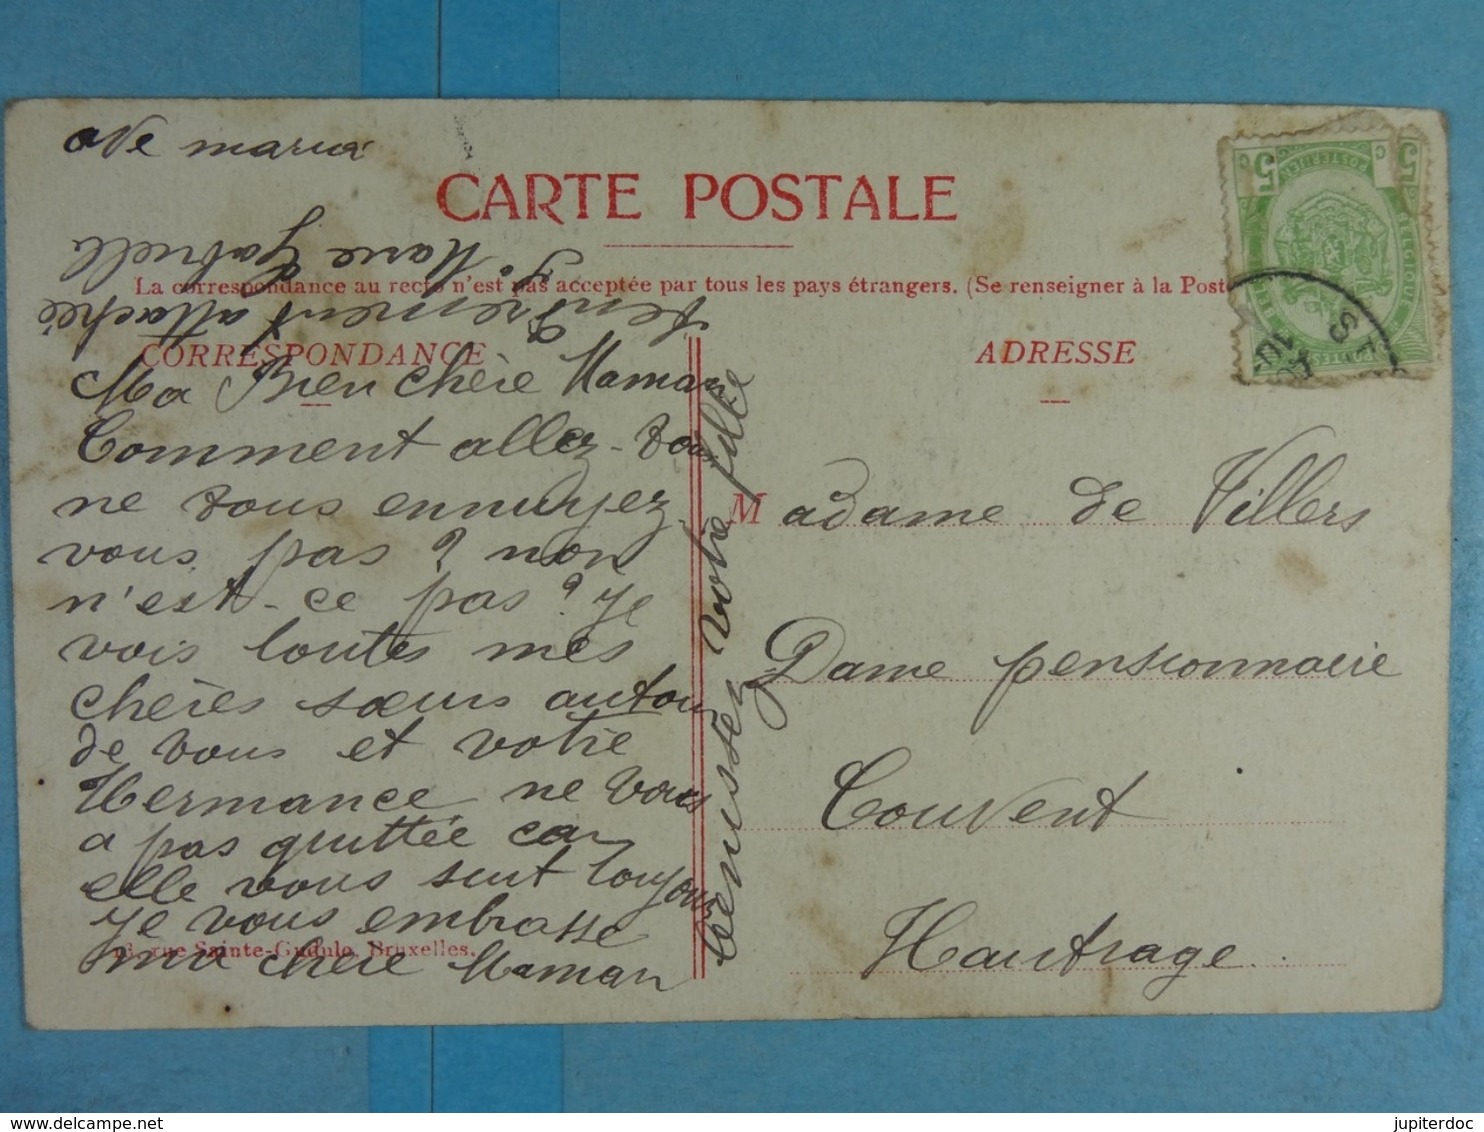 ave maria
CARTE POSTALE
La correspondance au recto n'est pas acceptée par tous les pays étrangers. (Se renseigner à la Poste
CORRESPONDANCE
ADRESSE
Ma Bien chère Maman
Comment allez-vous
ne vous ennuyez
vous pas? non
n'est-ce pas? je
vois toutes mes
chères sœurs autour
de vous et votre
Hermance ne vous
a pas quittée car
elle vous suit toujours
je vous embrasse
ma chère Maman
bénissez votre fille
tendrement attachée
Sr Marie Gabrielle
rue Sainte-Gudule, Bruxelles.
Madame de Villers
Dame pensionnaire
Couvent
Hautrage
5
5
BELGIQUE
jupiterdoc
http://www.delcampe.net